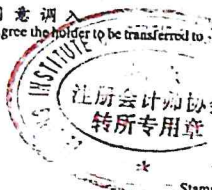 意调入
gree the holder to be transferred to
INSTITUTE
注册会计师协
转所专用章
Stamp